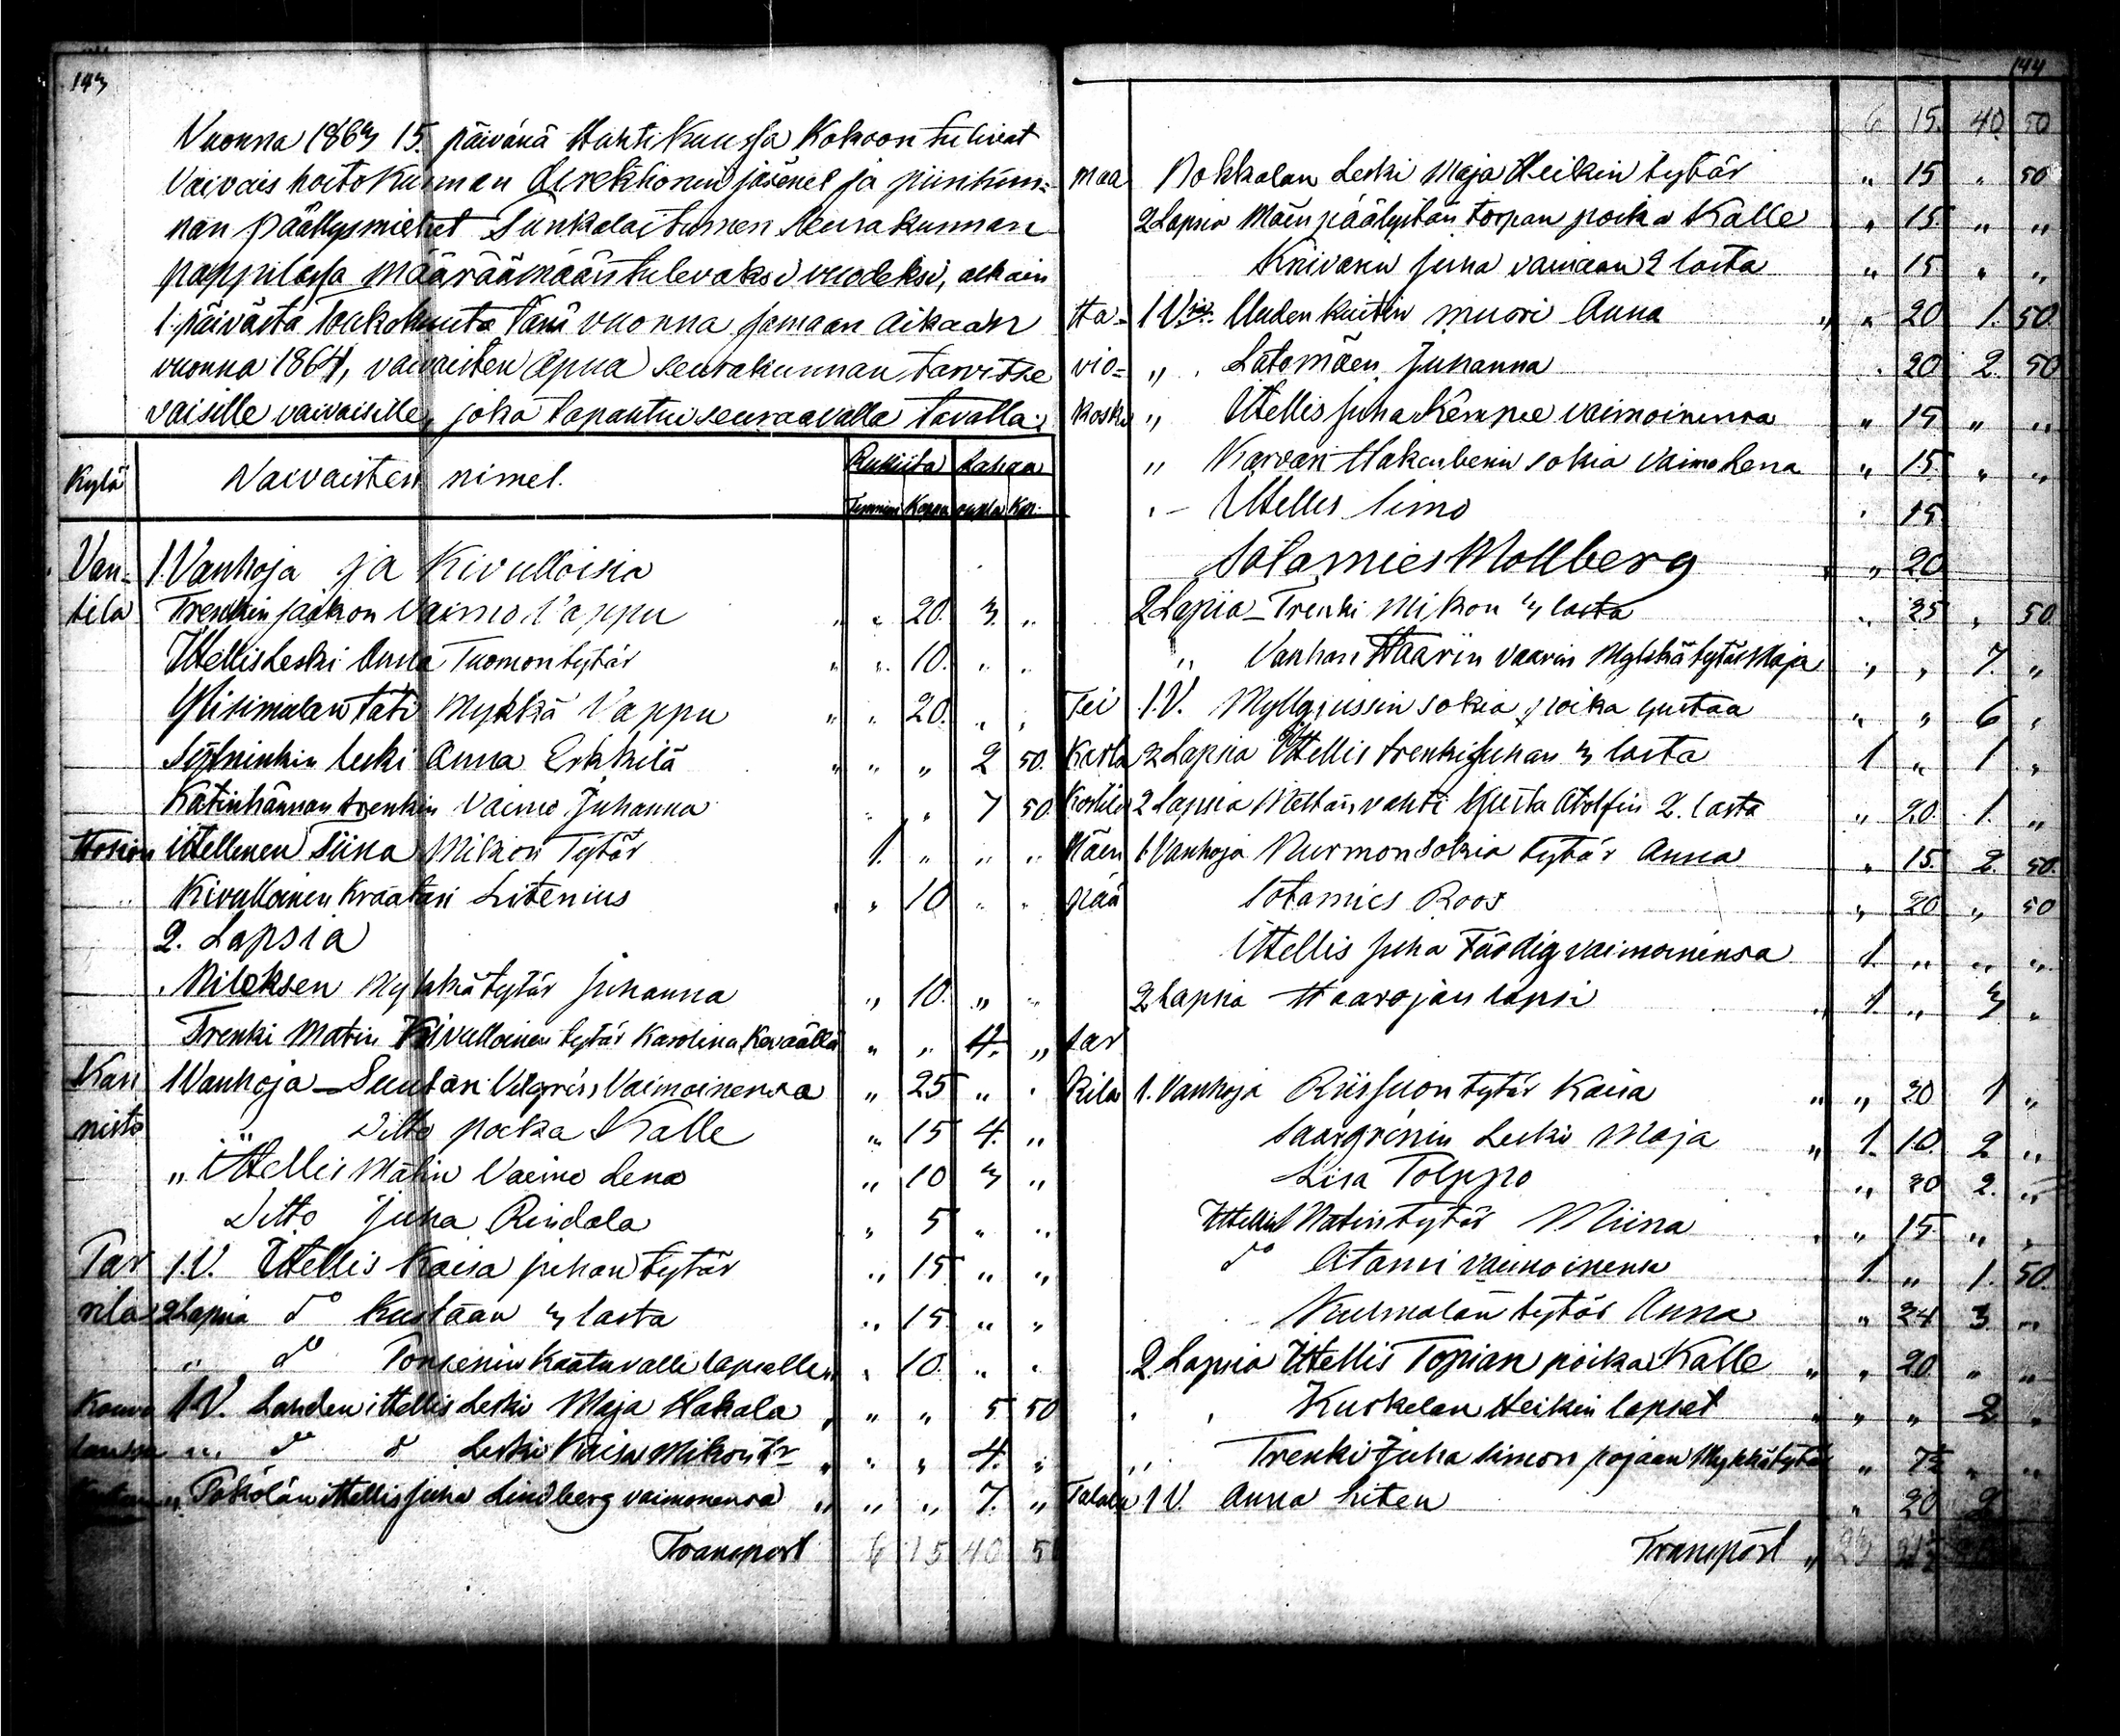 143
Vuonna 1863 15. päivänä Huhti Kuussa Kokoon tulivat
Vaivais hoitokunnan direktionin jäsenet ja piirikun=
nan päällysmiehet Punkalaitumen Seurakunnan
pappilassa määräämään tulevaksi vuodeksi, alkain
1. päivästä toukokuuta tänä vuonna samaan aikaan
vuonna 1864, vaivaisten apua seurakunnan tarvitse
vaisille vaivaisille, joka tapahtui seuraavalla tavalla:
Kylä Vaivaisten nimet. Rukiita Rahaa
Tynnöri Kappa rupla Kop.
Van= 1. Vanhoja ja Kivulloisia
tila Trenkin Jaakon Vaimo Vappu " " 20. 3. "
Ittellis Leski Anna Tuomontytär " " 10. " "
Ylisimulan täti Mykkä Vappu " " 20. " "
leski Anna Erkkilä " " " 2 50.
Katinhännan trenkin Vaimo Juhanna " " 7 50
ittellinen Stina Mikon Tytär 1. " " "
" Kivulloinen Kraatari Litenius " 10 " "
2. Lapsia
Mykkätytär Juhanna " 10. " "
Trenki Matin Kivulloinen tytär Karolina Keväällä " " 4. "
Kan 1 Vanhoja — Suutari Vaimoinensa " 25 " "
nisto " Ditto poika Kalle " 15 4. "
" Ittellis Matin Vaimo Lena " 10 3 "
Ditto Juha Rindala " 5 " "
Tar 1. V. Ittellis Kaisa Juhan tytär " 15 " "
rila 2 Lapsia do Kustaan 3 lasta " 15 " "
" do Kaatuvalle lapselle " 10. " "
1. V. Lahden ittellis Leski Maja Hakala " " 5 50
" do d Leski Kaisa Mikontr " " 4. "
" ittellis Juha Lindberg vaimonensa " " " 7. "
Transport 6 15 40 50
144
6 15. 40 50
maa Nokkalan Leski Maja Heikin tytär " 15 " 50
2 Lapsia Mäenpäälystän torpan poika Kalle " 15. " "
Juha vainaan 2 lasta " 15 " "
Ha= 1 V. Uuden kuitin muori Anna " " 20 1. 50.
vio= " Latomäen Juhanna " 20 2. 50
koski " Ittellis Juha Kämpee vaimoinensa " 15 " "
" sokia Vaimo Lena " 15. " "
" – Ittellis Simo " 15
Sotamies Mollberg " " 20
2 Lapsia – Trenki Mikon 3 lasta " 25 " 50
" Vanhan Haarin vaarin Mykkä tytär Maja " " 7. "
Tei 1. V. sokia poika Gustaa " " 6 "
2 Lapsia Ittellis trenki Juhan 3 lasta 1 " 1 "
2 Lapsia Mettän vahti Atolfin 2. lasta " 20. 1. "
Mäen 1. Vanhoja Nurmon sokia tytär Anna " 15. 2. 50.
pää Sotamies Roos " 20 " 50
Ittellis Juha Färdig vaimoinensa 1. " " "
2 Lapsia Haarojan lapsi " 1. " 3 "
Sar
kila 1. Vanhoja Riissuon tytär Kaisa " " 20 1 "
Saargrénin Leski Maja " 1. 10. 2 "
Lisa Tolppo " 20 2. "
Ittellis Matin tytär Miina " " 15. " "
do Atami vaimoinensa 1. " 1. 50.
Kulmalan tytär Anna " 24 3 "
2 Lapsia Ittellis Topian poika Kalle " " 20. " "
" " Kuskelan Heikin lapset " " " 2 "
" Trenki Juha Simon pojaan Mykkätytär " 7½ " "
Talala 1 V. Anna Liten " 20 2
Transport "